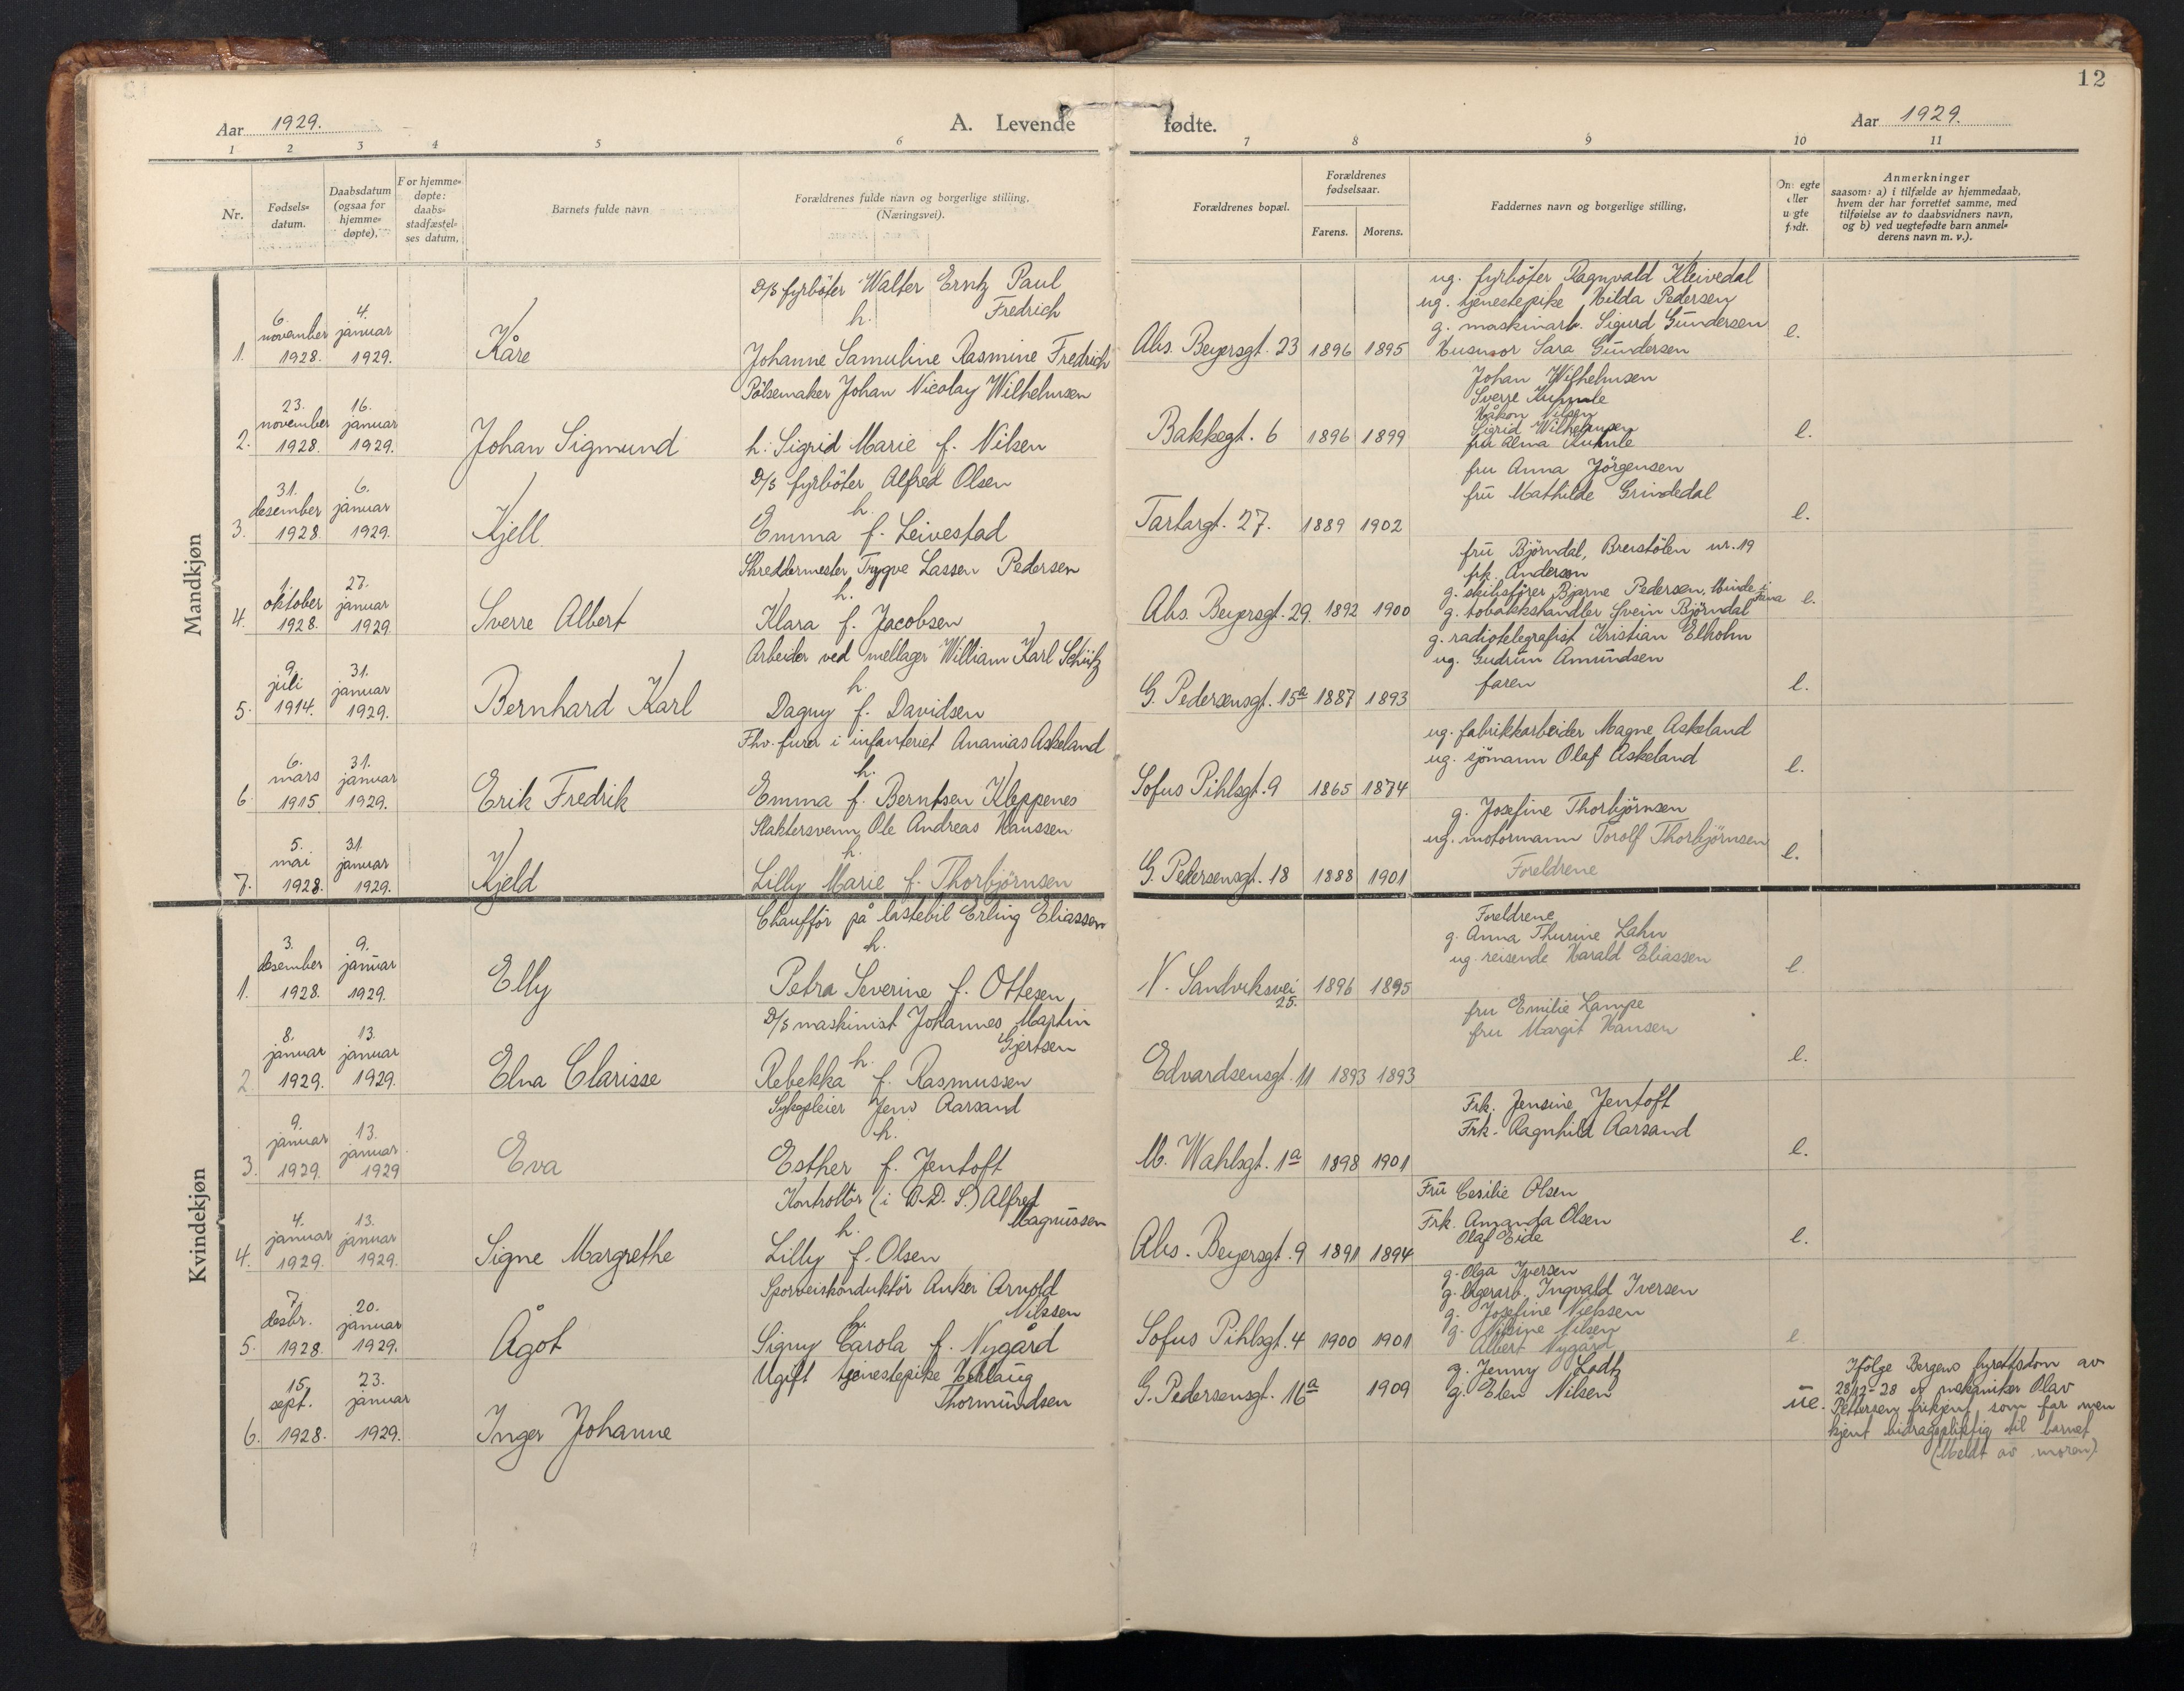 12
Aar 1929.
A. Levende fødte.
Aar 1929.
1 2 3 4 5 6 7 8 9 10 11
Nr.
Fødsels-
datum.
Daabsdatum
(ogsaa for
hjemme-
døpte).
For hjemme-
døpte:
daabs-
stadfæstel-
ses datum.
Barnets fulde navn
Forældrenes fulde navn og borgerlige stilling.
(Næringsvei).
Forældrenes bopæl.
Forældrenes
fødselsaar.
Farens. Morens.
Faddernes navn og borgerlige stilling,
Om egte
eller
uegte
født.
Anmerkninger
saasom: a) i tilfælde av hjemmedaab,
hvem der har forrettet samme, med
tilføielse av to daabsvidners navn,
og b) ved uegtefødte barn anmel-
derens navn m. v.).
Mandkjøn
1.
6.
november
1928.
4.
januar
1929.
Kåre
D/S fyrböter Walter Erntz Paul
Fredrich
h.
Johanne Samuline Rasmine Fredrich
Ahs. Beyersgt. 23 1896 1895
ug. fyrböter Ragnvald Kleivedal
ug. tjenestepike Hilda Pedersen
g. maskinarb. Sigurd Gundersen
Husmor Sara Gundersen
e.
2.
23.
november
1928.
16.
januar
1929.
Johan Sigmund
Pölsemaker Johan Nicolay Wilhelmsen
h. Sigrid Marie f. Nilsen
Bakkegt. 6 1896 1899
Johan Wilhelmsen
Sverre Kuhnle
Håkon Nilsen
Sigrid Wilhelmsen
fru Alma Kuhnle
e.
3.
31.
desember
1928.
6.
januar
1929.
Kjell
D/S fyrböter Alfred Olsen
h.
Emma f. Leivestad
Tartargt. 27. 1889 1902
fru Anna Jörgensen
fru Mathilde Grindedal
e.
4.
1.
oktober
1928.
27.
januar
1929.
Sverre Albert
Skreddermester Trygve Lassen Pedersen
h.
Klara f. Jacobsen
Ahs. Beyersgt. 29. 1892 1900
fru Björndal, Breistölen nr. 19
frk. Anderson
g. skibsfører Bjarne Pedersen, Minde i
g. tobakkshandler Svein Björndal
e.
5.
9.
juli
1914.
31.
januar
1929.
Bernhard Karl
Arbeider ved mellager William Karl Schütz
h.
Dagny f. Davidsen
G. Pedersensgt. 15a 1887 1893
g. radiotelegrafist Kristian Elholm
ug. Gudrun Amundsen
faren
e.
6.
6.
mars
1915
31.
januar
1929.
Erik Fredrik
Fhv. furer i infanteriet Ananias Askeland
h.
Emma f. Berntsen Kleppenes
Sofus Pihlsgt. 9 1865 1874
ug. fabrikkarbeider Magne Askeland
ug. sjömann Olaf Askeland
e.
7.
5.
mai
1928.
31.
januar
1929.
Kjeld
Slaktersvenn Ole Andreas Hanssen
h.
Lilly Marie f. Thorbjörnsen
G. Pedersensgt. 18 1888 1901
g. Josefine Thorbjörnsen
ug. motormann Torolf Thorbjörnsen
Foreldrene
e.
Kvindekjøn
1.
3.
desember
1928.
9.
januar
1929.
Elly
Chaufför på lastebil Erling Eliassen
h.
Petra Severine f. Ottesen
N. Sandviksvei
25.
1896 1895
Foreldrene
g. Anna Thurine Lahn
ug. reisende Harald Eliassen
e.
2.
8.
januar
1929.
13.
januar
1929.
Elna Clarisse
D/S maskinist Johannes Martin
Gjertsen
h.
Rebekka f. Rasmussen
Edvardsensgt. 11 1893 1893
fru Emilie Lampe
fru Margit Hansen
e.
3.
9.
januar
1929.
13.
januar.
1929
Eva
Sykepleier Jens Aarsand
h.
Esther f. Jentoft
M. Wahlsgt. 1a 1898 1901
Frk. Jensine Jentoft
Frk. Ragnhild Aarsand
e.
4.
4.
januar
1929.
13.
januar
1929.
Signe Margrethe
Kontrollör (i D.D.S.) Alfred
Magnussen
h.
Lilly f. Olsen
Ahs. Beyersgt. 9 1891 1894
Fru Cesilie Olsen
Frk. Amanda Olsen
Olaf Eide
e.
5.
7.
desbr.
1928.
20.
januar
1929.
Ågot
Sporveiskonduktör Anker Arnold
Nilssen
h.
Signy Carola f. Nygård
Sofus Pihlsgt. 4 1900 1901
g. Olga Iversen
g. lagerarb. Ingvald Iversen
g. Josefine Nielssen
g. Nilsine Nilsen
Albert Nygård
e.
6.
15.
sept.
1928.
23.
januar
1929.
Inger Johanne
Ugift tjenestepike Herlaug
Thormundsen
G. Pedersensgt. 16a 1909
g. Jenny Lodtz
g. Elen Nilsen
ue.
Ifölge Bergens byrettsdom av
28/12-28 er mekaniker Olav
Pettersen frikjent som far men
kjent bidragspliktig til barnet
(Meldt av moren)